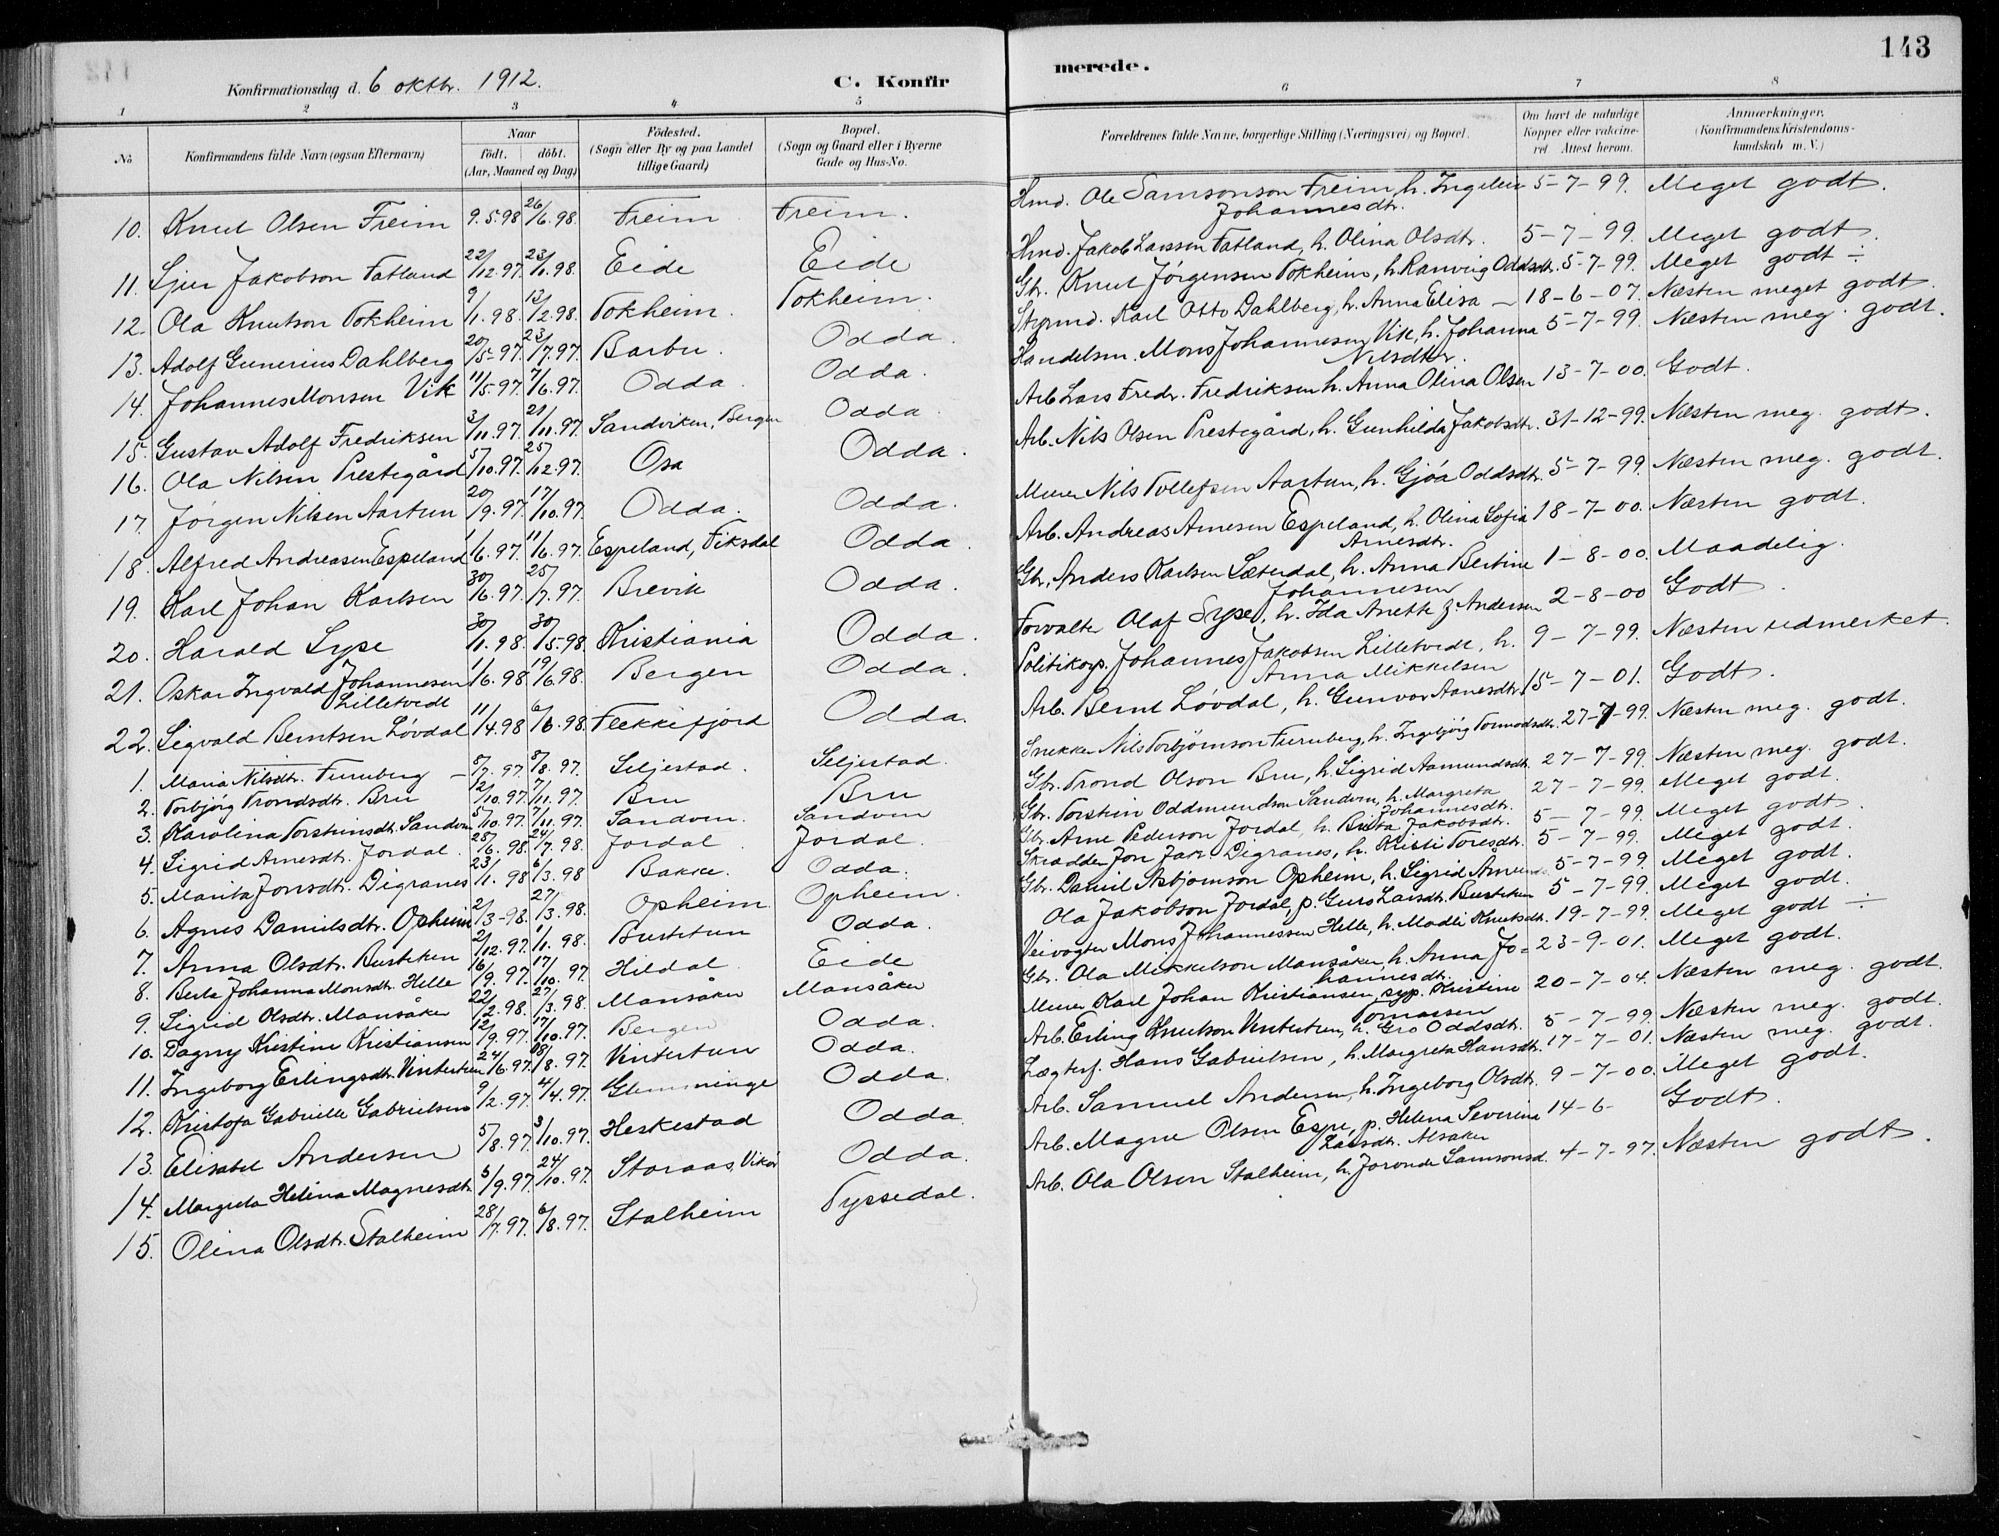 143
Konfirmationsdag d. 6 oktbr. 1912.
C. Konfirmerede.
1 2 3 4 5 6 7 8
No
Konfirmandens fulde Navn (ogsaa Efternavn)
Naar
födt. döbt.
(Aar, Maaned og Dag)
Födested.
(Sogn eller By og paa Landet
tillige Gaard)
Bopæl.
(Sogn og Gaard eller i Byerne
Gade og Hus-No.
Forældrenes fulde Navne, borgerlige Stilling (Næringsvei) og Bopæl.
Om havt de naturlige
Kopper eller vakcine-
ret. Attest herom.
Anmærkninger.
(Konfirmandens Kristendoms-
kundskab m. V.)
10. Knut Olsen Freim 9.5.98 26/6.98. Freim Freim. Hmd. Ole Samsonson Freim, h. Ingeleiv Johannesdtr. 5-7-99. Meget godt.
11. Sjur Jakobson Fatland 22/12.97. 23/1.98. Eide Eide Hmd. Jakob Larssen Fatland, h. Olina Olsdtr. 5-7-99. Meget godt.
12. Ola Knutson Tokheim 9/1.98. 13/2.98. Tokheim. Tokheim. Gbr. Knut Jørgensen Tokheim, h. Ranveig Oddsdtr. 5-7-99. Meget godt ÷
13. Adolf Gunerius Dahlberg 20/5.97. 23/7.97. Barbu. Odda. Styrmd. Karl Otto Dahlberg, h. Anna Elisa — 18-6-07. Næsten meget godt.
14. Johannes Monsen Vik 11/5.97. 7/6.97. Odda. Odda. Handelsm. Mons Johannesen Vik, h. Johanna Nilsdtr. 5-7-99. Næsten meg. godt.
15. Gustav Adolf Fredriksen 3/11.97. 21/11.97. Sandviken, Bergen Odda. Arb. Lars Fredr. Fredriksen h. Anna Olina Olsen 13-7-00. Godt.
16. Ola Nilsen Prestegård 5/10.97. 25/12.97. Osa Odda. Arb. Nils Olsen Prestegård, h. Gunhilda Jakobsdtr. 31-12-99. Næsten meg. godt.
17. Jørgen Nilsen Aartun 20/9.97. 17/10.97. Odda. Odda. Murer Nils Tollefsen Aartun, h. Gjøa Oddsdtr. 5-7-99 Næsten meg. godt.
18. Alfred Andreasen Espeland 1/6.97. 11/6.97. Espeland, Fiksdal Odda. Arb. Andreas Arnesen Espeland, h. Olina Sofia Arnesdtr. 18-7-00. Næsten godt.
19. Karl Johan Karlsen 30/6.97. 25/7.97. Brevik Odda. Gbr. Anders Karlsen Sæterdal, h. Anna Bertine Johannesen 1-8-00. Maadelig.
20. Harald Sype 30/1.98. 30/5.98. Kristiania Odda. Forvalter Olaf Sype, h. Ida Anette f. Andersen 2-8-00 Godt
21. Oskar Ingvald Johannesen Lilletvedt 1/6.98. 19/6.98. Bergen Odda. Politikop. Johannes Jakobsen Lilletvedt, h. Anna Mikkelsen 9-7-99. Næsten udmerket.
22. Sigvald Berntsen Løvdal 11/4.98 6/6.98. Flekkefjord Odda. Arb. Bernt Løvdal, h. Gunvor Aanesdtr. 15-7-01. Godt.
1. Maria Nilsdtr. Furuberg 5/7.97. 8/8.97. Seljestad. Seljestad. Snekker Nils Torbjørnson Furuberg, h. Ingebjørg Tormodsdtr. 27-7-99. Næsten meg. godt.
2. Torbjørg Trondsdtr. Bru 12/10.97. 7/11.97. Bru Bru Gbr. Trond Olson Bru, h. Sigrid Aamundsdtr. 27-7-99. Næsten meg. godt.
3. Karolina Torsteinsdt. Sandven 5/10.97. 7/11.97. Sandven. Sandven Gbr. Torstein Oddmundson Sandven, h. Margreta Johannesdtr. 27-7-99. Meget godt.
4. Sigrid Arnesdtr. Jordal 25/6.98. 24/7.98. Jordal Jordal. Gbr. Arne Pederson Jordal, h. Brita Jakobsdtr. 5-7-99. Meget godt.
5. Marita Jonsdtr. Digranes 23/1.98 6/3.98 Bakke. Odda. Skrædder Jon Jak. Digranes, h. Kristi Toresdtr. 5-7-99. Meget godt.
6. Agnes Danielsdtr. Opheim 2/3-98. 27/3.98. Opheim Opheim. Gbr. Daniel Asbjørnson Opheim, h. Sigrid 5-7-99 Meget godt.
7. Anna Olsdtr. Bustetun 2/12.97. 1/1.98. Bustetun Odda. Ola Jakobson Jordal, p. Guro Larsdtr. Bustetun 5-7-99. Meget godt.
8. Berta Johanna Monsdtr. Helle 16/9.97. 17/10.97. Hildal Eide Veivogter Mons Johannessen Helle, h. Madli Knutsdtr. 19-7-99. Meget godt ÷
9. Sigrid Olsdtr. Mansåker 22/2.98. 27/3.98. Mansåker Mansåker Gbr. Ola Mikkelson Mansåker, h. Anna Johannesdtr. 23-9-01. Meget godt.
10. Dagny Kristine Kristiansen 12/9.97. 17/10.97. Bergen Odda. Murer Karl Johan Kristiansen, syp. Kristine Tomassen 20-7-04. Næsten meg. godt.
11. Ingeborg Erlingsdtr. Vintertun 24/6.97. 08/8.97. Vintertun Odda. Arb. Erling Knutson Vintertun, h. Gro Oddsdtr. 5-7-99. Næsten meg. godt.
12. Kristofa Gabrielle Gabrielsen 9/2.97. 4/4.97. Glemminge Odda. Lægterf. Hans Gabrielsen, h. Margreta Hansdtr. 17-7-01. Næsten meg. godt.
13. Elisabet Andersen 5/8.97. 3/10.97. Heskestad Odda. Arb. Samuel Andersen, h. Ingeborg Olsdtr. 9-7-00. Meget godt.
14. Margreta Helina Magnesdtr. 5/9.97. 24/10.97. Storaas, Vikør Odda. Arb. Magne Olsen Espe, p. Helena Severine Larsdtr. Alsaker 14-6- Godt.
15. Olina Olsdtr. Stalheim 28/7.97. 6/8.97. Stalheim Tyssedal. Arb. Ola Olsen Stalheim, h. Joronde Samsonsd. 4-7-97. Næsten godt.